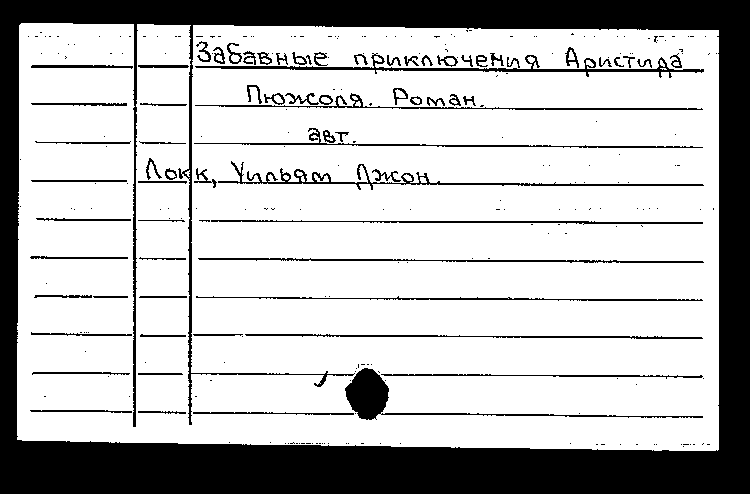 Забавные приключения Аристида
Пюжоля. Роман.
авт.
Локк, Уильям Джон.